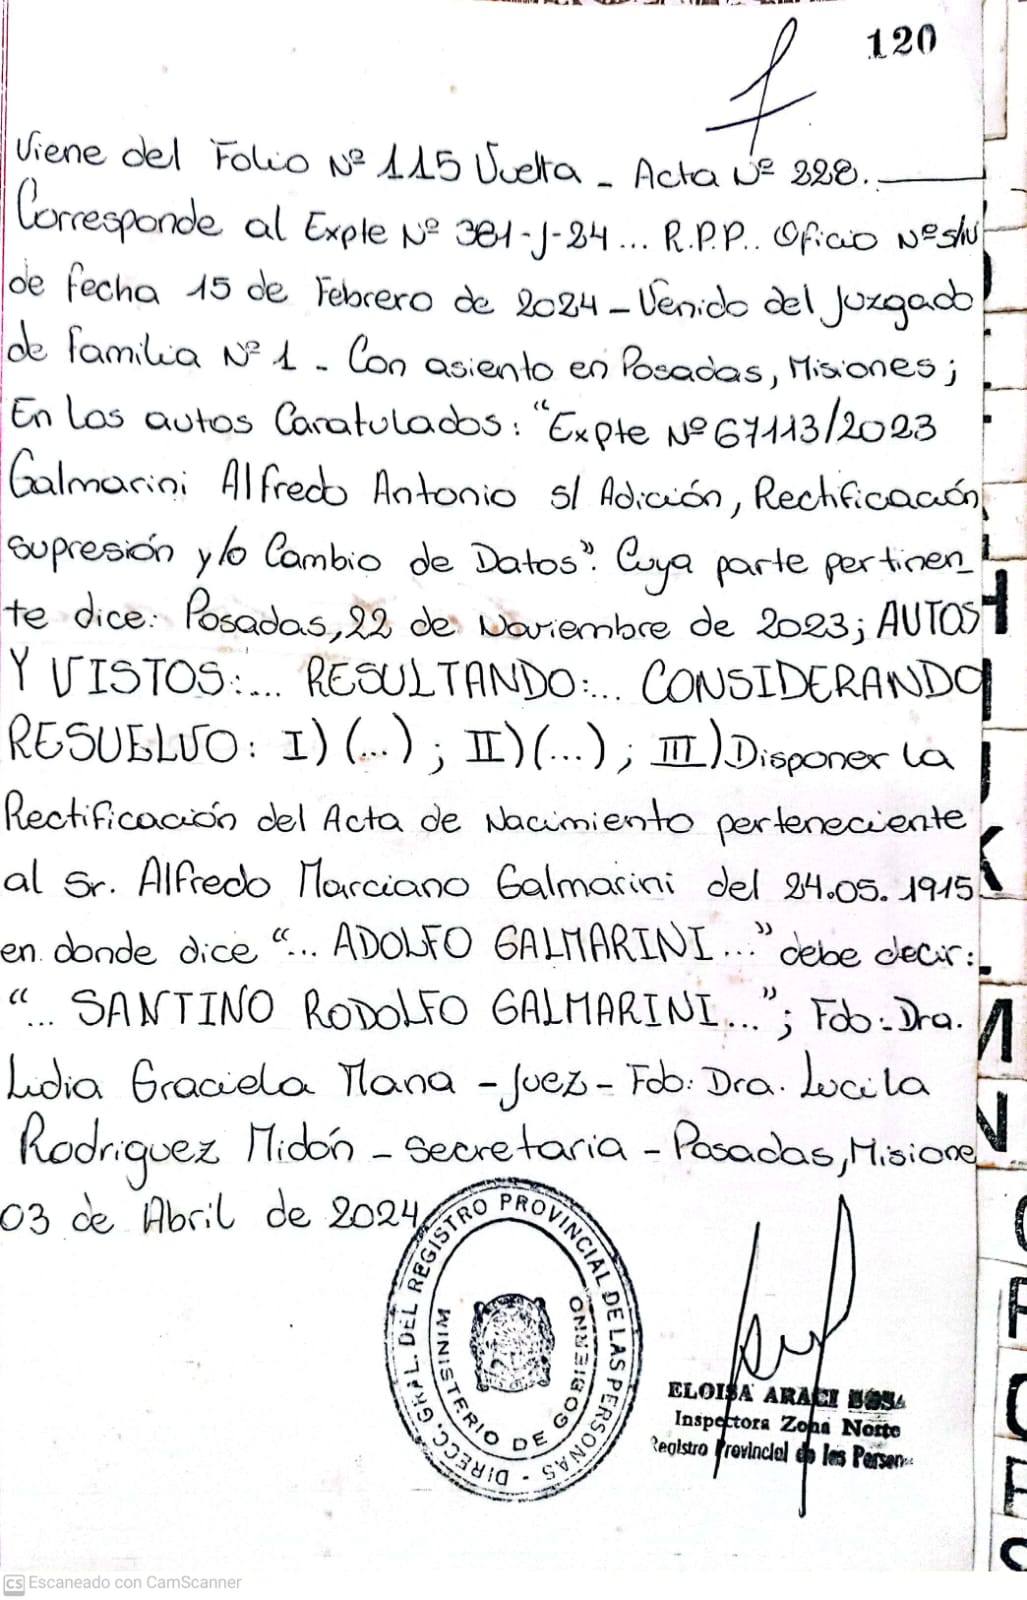 120
Viene del Folio Nº 115 Vuelta - Acta Nº 228.
Corresponde al Expte Nº 381-J-24... R.P.P.. Oficio Nº s/n
de fecha 15 de Febrero de 2024 - Venido del Juzgado
de familia Nº 1 - Con asiento en Posadas, Misiones;
En los autos Caratulados: "Expte Nº 67113/2023
Galmarini Alfredo Antonio s/ Adición, Rectificación
supresión y/o Cambio de Datos". Cuya parte pertinen_
te dice: Posadas, 22 de Noviembre de 2023; AUTOS
Y VISTOS:... RESULTANDO:... CONSIDERANDO
RESUELVO: I) (...) ; II) (...) ; III) Disponer la
Rectificación del Acta de Nacimiento perteneciente
al Sr. Alfredo Marciano Galmarini del 24.05.1915
en donde dice "... ADOLFO GALMARINI..." debe decir:
"... SANTINO RODOLFO GALMARINI..."; Fdo: Dra.
Lidia Graciela Mana - Juez - Fdo: Dra. Lucila
Rodriguez Midón - Secretaria - Posadas, Misione
03 de Abril de 2024
DIRECC. GRAL. DEL REGISTRO PROVINCIAL DE LAS PERSONAS -
MINISTERIO DE GOBIERNO
ELOISA ARACI
Inspectora Zona Norte
Registro Provincial de las Person
H
I
J
K
L
M
N
O
P
Q
R
S
CS Escaneado con CamScanner